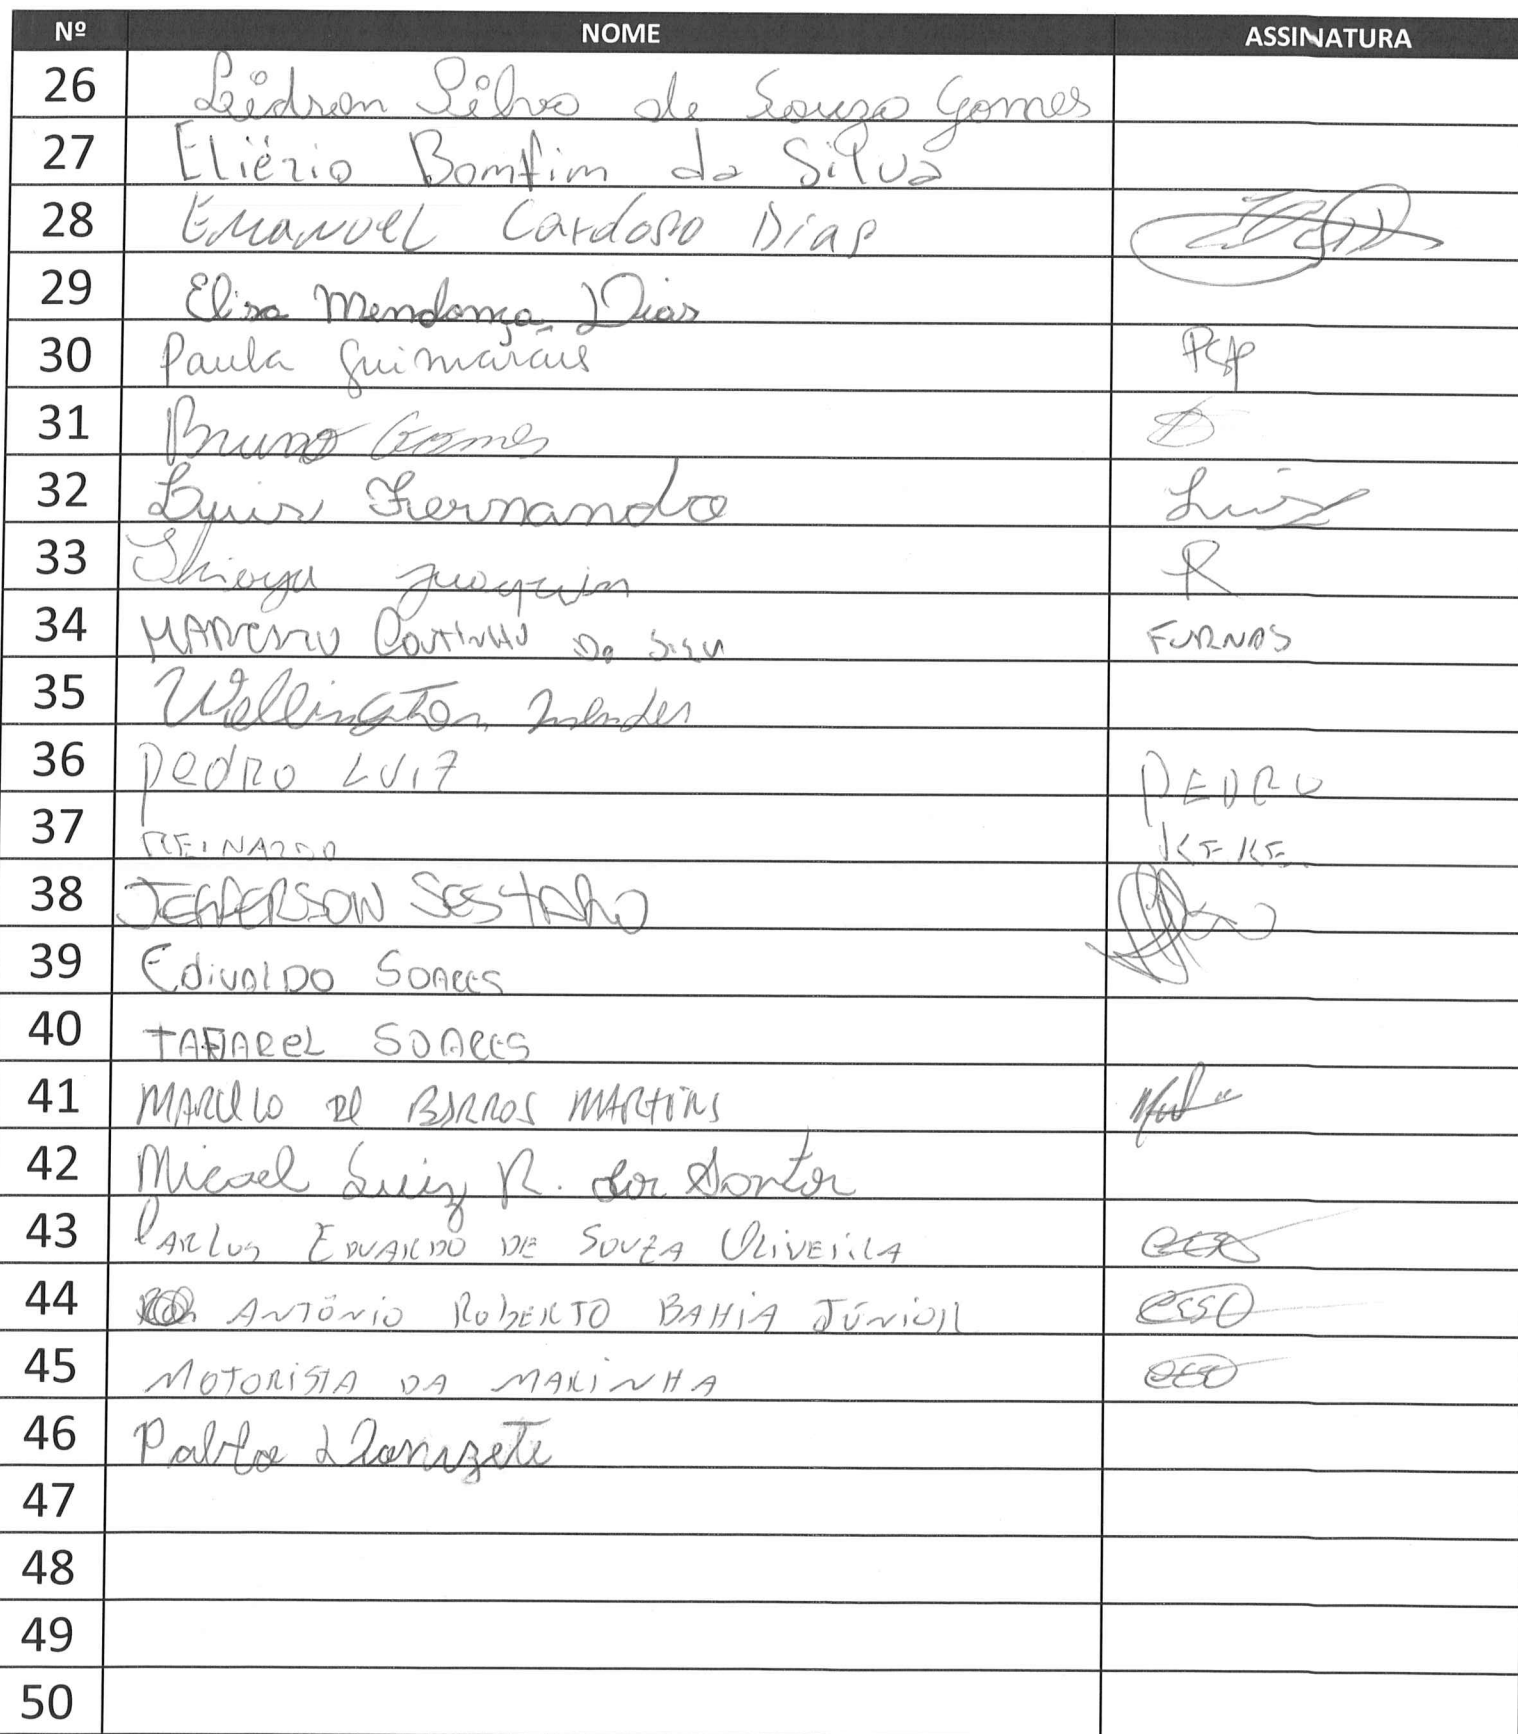 Nº NOME ASSINATURA
26 Leidson Silva de Souza Gomes
27 Eliézio Bomfim da Silva
28 Emanoel Cardoso Dias
29 Elisa Mendonça Dias
30 Paula Guimarães PGP
31 Bruno Gomes
32 Luis Fernando Luis
33 Joaquim R
34 Coutinho Da FURNAS
35 Wellington Mendes
36 Pedro LUiz PEDRO
37 REINALDO KEKE
38 JEFFERSON SESTARO
39 EdivalDO SOARES
40 TAFAREL SOARES
41 MARCELO DE BARROS MARTINS
42 Micael Luiz R. dos Santos
43 CARLOS EDUARDO DE SOUZA OLIVEIRA
44 ANTÔNIO ROBERTO BAHIA JÚNIOR
45 MOTORISTA DA MARINHA
46 Pablo Donizete
47
48
49
50